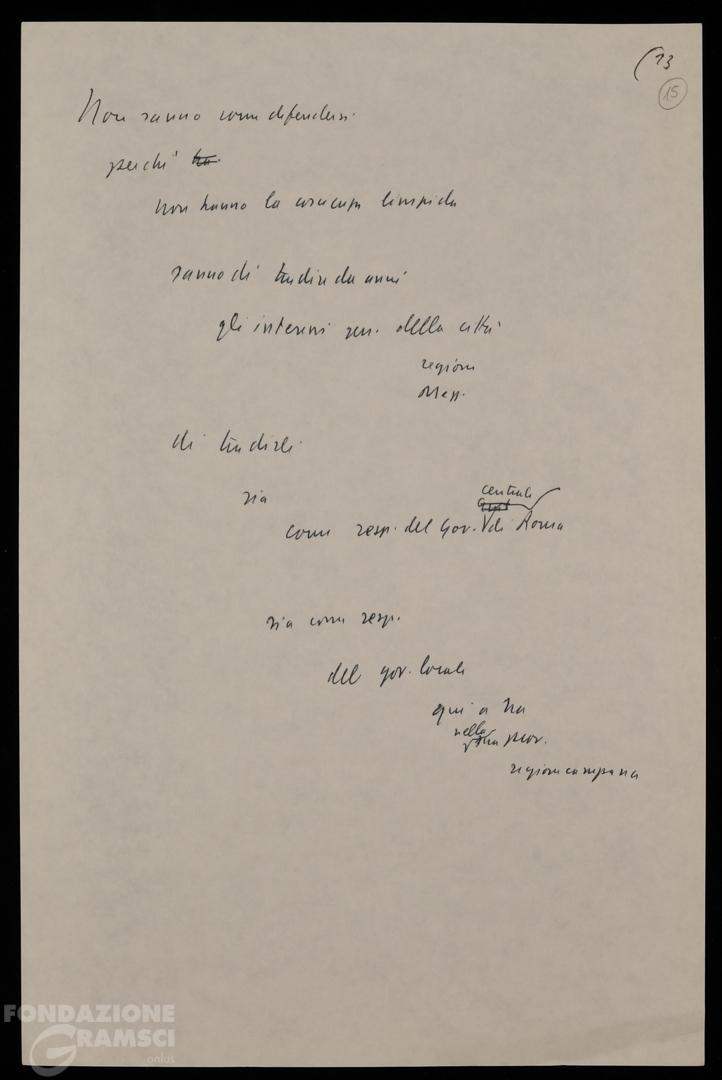 (13
15
Non sanno come difendersi
perché ha
non hanno la coscienza limpida
sanno di tradire da anni
gli interessi gen. della città
regione
Mezz.
di tradirli
sia
centrale
come resp. del Gov. di Roma
sia come resp.
del gov. locale
qui a Na
nella prov.
regione campana
FONDAZIONE
GRAMSCI
onlus